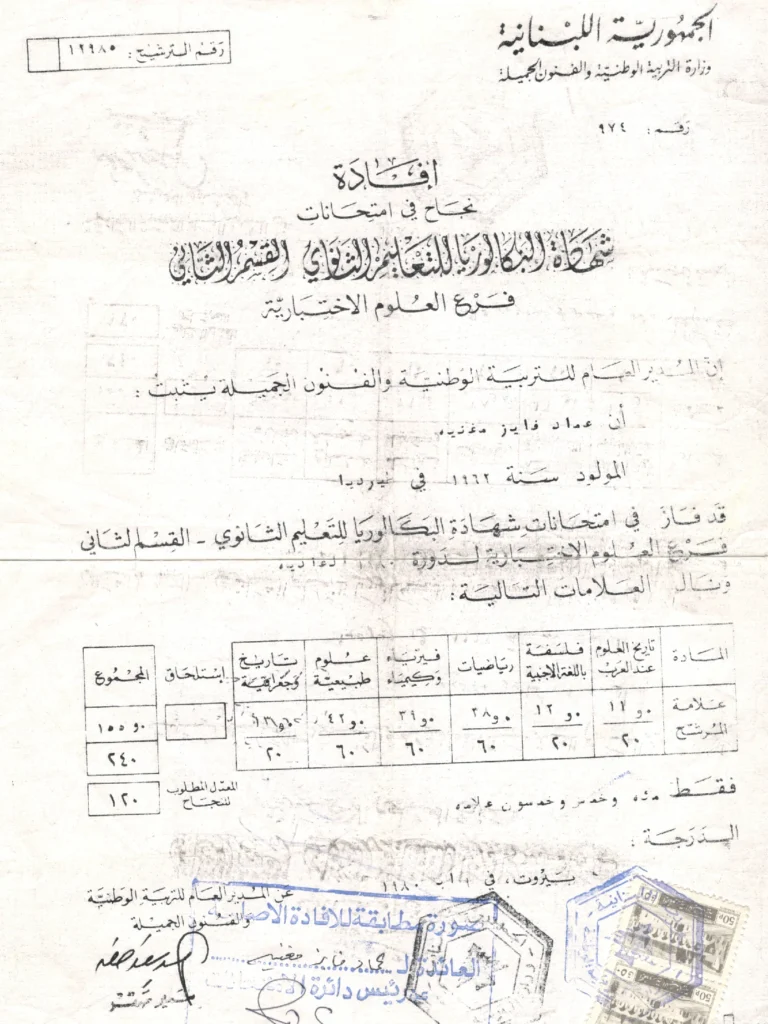 الجمهورية اللبنانية
وزارة التربية الوطنية والفنون الجميلة
رقم الترشيح: ١٢٩٨٥
رقم: ٩٧٤
إفادة
نجاح في امتحانات
شهادة البكالوريا للتعليم الثانوي القسم الثاني
فرع العلوم الاختبارية
إن المدير العام للتربية الوطنية والفنون الجميلة يثبت:
أن عماد فايز مغنيه
المولود سنة ١٩٦٢ في طيردبا
قد فاز في امتحانات شهادة البكالوريا للتعليم الثانوي - القسم الثاني
فرع العلوم الاختبارية لدورة
ونال العلامات التالية:
المادة تاريخ العلوم عند العرب فلسفة باللغة الاجنبية رياضيات فيزياء وكيمياء علوم طبيعية تاريخ وجغرافية إستلحاق المجموع
علامة المرشح ١١و٠ ١٢و٠ ٢٨و٠ ٣٩و٠ ٤٢و٠ ١٥٥و٠
٢٠ ٢٠ ٦٠ ٦٠ ٦٠ ٢٠ ٢٤٠
المعدل المطلوب للنجاح ١٢٠
فقط مئه وخمس وخمسون علامه
الدرجة:
بيروت، في آب ١٩٨٠
عن المدير العام للتربية الوطنية
والفنون الجميلة
صورة مطابقة للافادة الاصلية
العائدة لـ عماد فايز مغنيه
رئيس دائرة الامتحانات
50P
50P